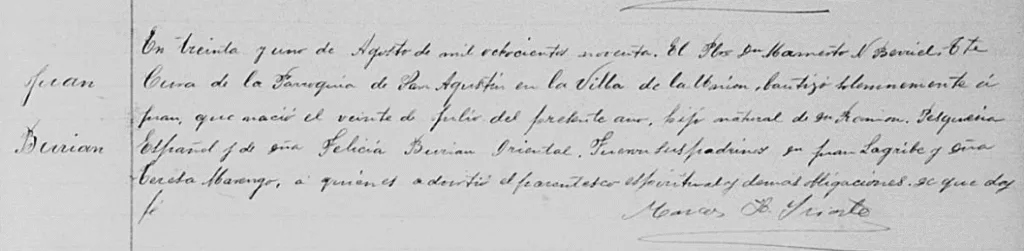 Juan
Burian
En treinta y uno de Agosto de mil ochocientos noventa. El Pbro Dn Mamerto N Berriel Tte
Cura de la Parroquia de San Agustin en la Villa de la Union, bautizó solemnemente á
Juan, que nació el veinte de Julio del presente año, hijo natural de Dn Ramon
Español y de Dña Felicia Burian Oriental. Fueron sus padrinos Dn Juan Lagribe y Dña
Teresa Marengo, á quienes advirtió el parentesco espiritual y demas obligaciones de que doy
fé
Marcos Yriarte